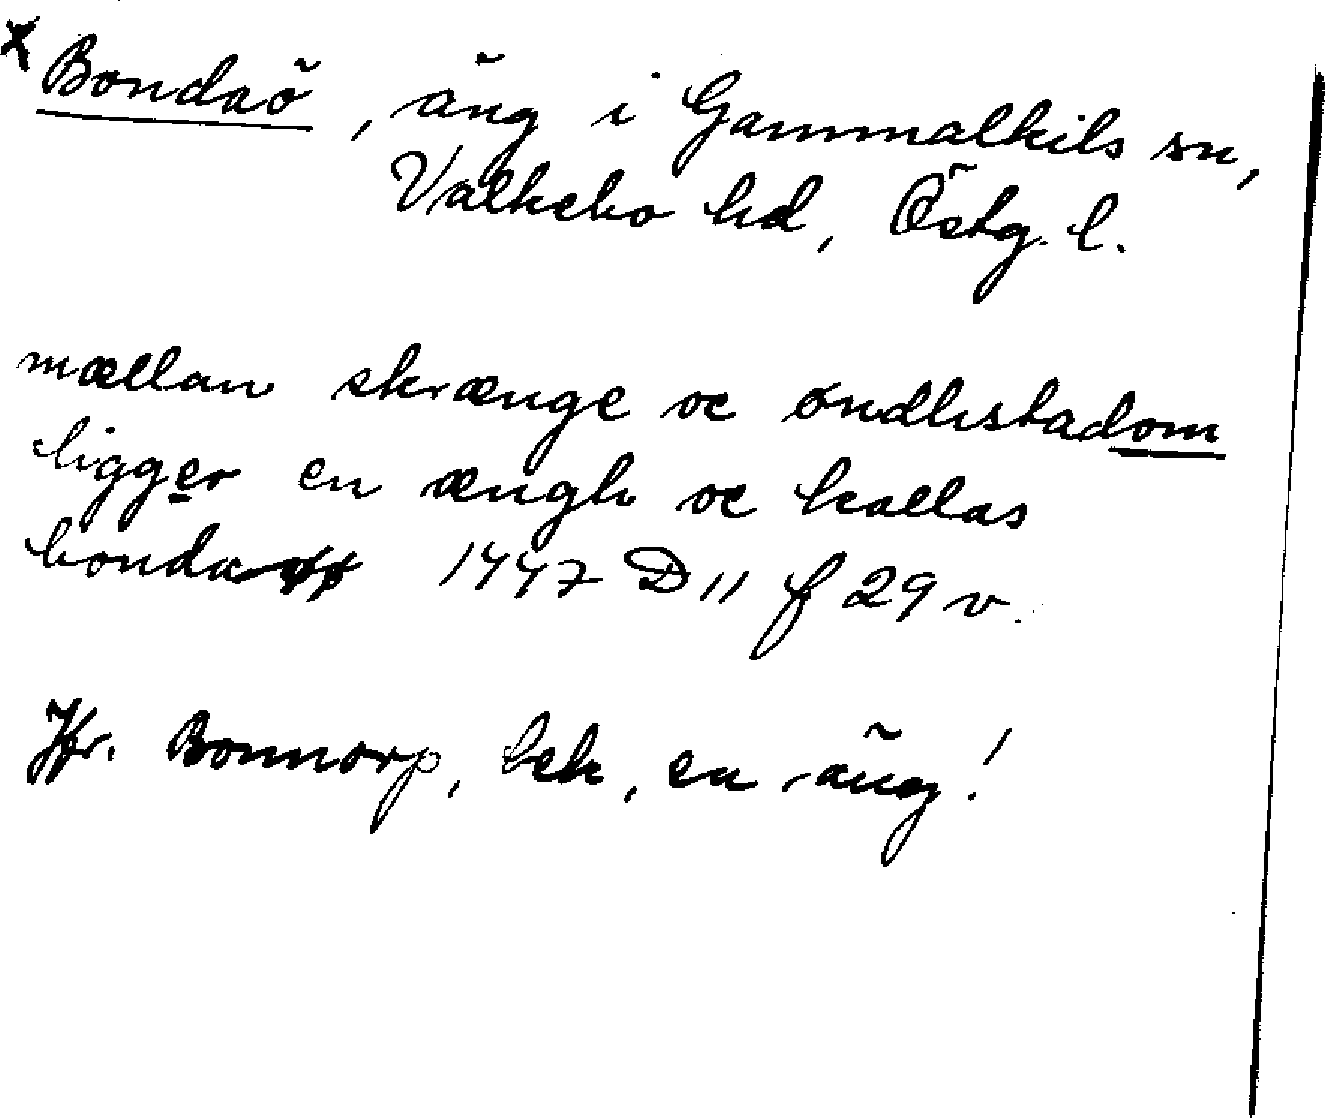 x Bondaö, äng i Gammalkils sn,
Valkebo hd, Östg. l.
mællan skrænge oc øndhstadom
ligger en ængh oc kallas
bondaøø 1447 D 11 f 29 v.
Jfr. Bonnorp, bek, en äng!